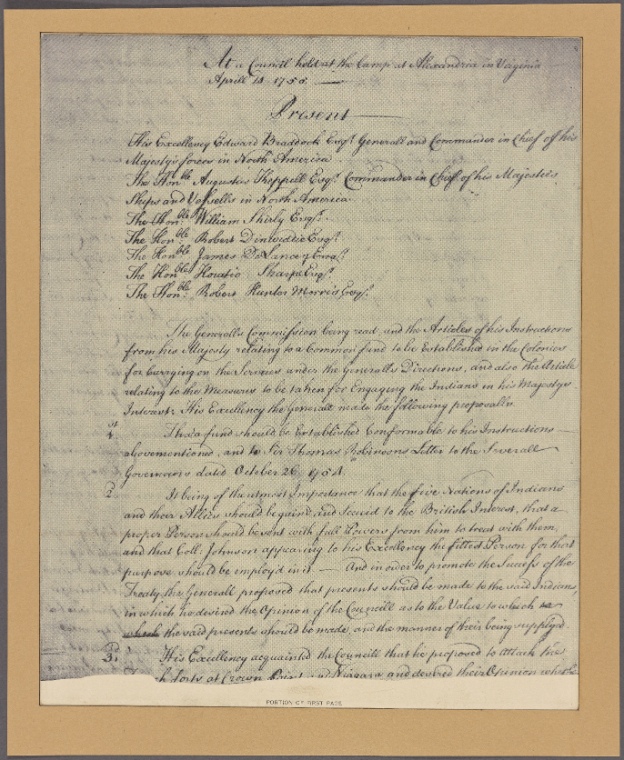 At a Council held at the Camp at Alexandria in Virginia
April 14 1755
Present
His Excellency Edward Braddock Esqr. Generall and Commander in Chief of his
Majesty's forces in North America
The Honble Augustus Keppell Esqr. Commander in Chief of his Majesties
Ships and Vessells in North America
The Honble William Shirly Esqr.
The Honble Robert Dinwiddie Esqr.
The Honble James DeLancey Esqr.
The Honble Horatio Sharpe Esqr.
The Honble Robert Hunter Morris Esqr.
The Generalls Commission being read, and the Articles of his Instructions
from his Majesty relating to a Common fund to be Established in the Colonies
for Carrying on the Services under the Generalls Directions, and also the Article
relating to the Measures to be taken for Engaging the Indians in his Majestys
Interest; His Excellency the Generall made the following proposalls
1st. That a fund should be Established Conformable to his Instructions
aforementioned, and to Sir Thomas Robinsons Letter to the Severall
Governors dated October 26, 1754.
2d. It being of the utmost Importance that the five Nations of Indians
and their Allies should be gained and secured to the British Interest, that a
proper Person should be sent with full Powers from him to treat with them,
and that Coll. Johnson appearing to his Excellency the fittest Person for that
purpose should be employ'd in it — And in order to promote the Success of the
Treaty, the Generall proposed that presents should be made to the said Indians,
in which he desired the Opinion of the Councill as to the Value to which
the said presents should be made, and the manner of their being supplyed
3d. His Excellency acquainted the Councill that he proposed to attack the
forts at Crown Point and Niagara and desired their Opinion
PORTION OF FIRST PAGE